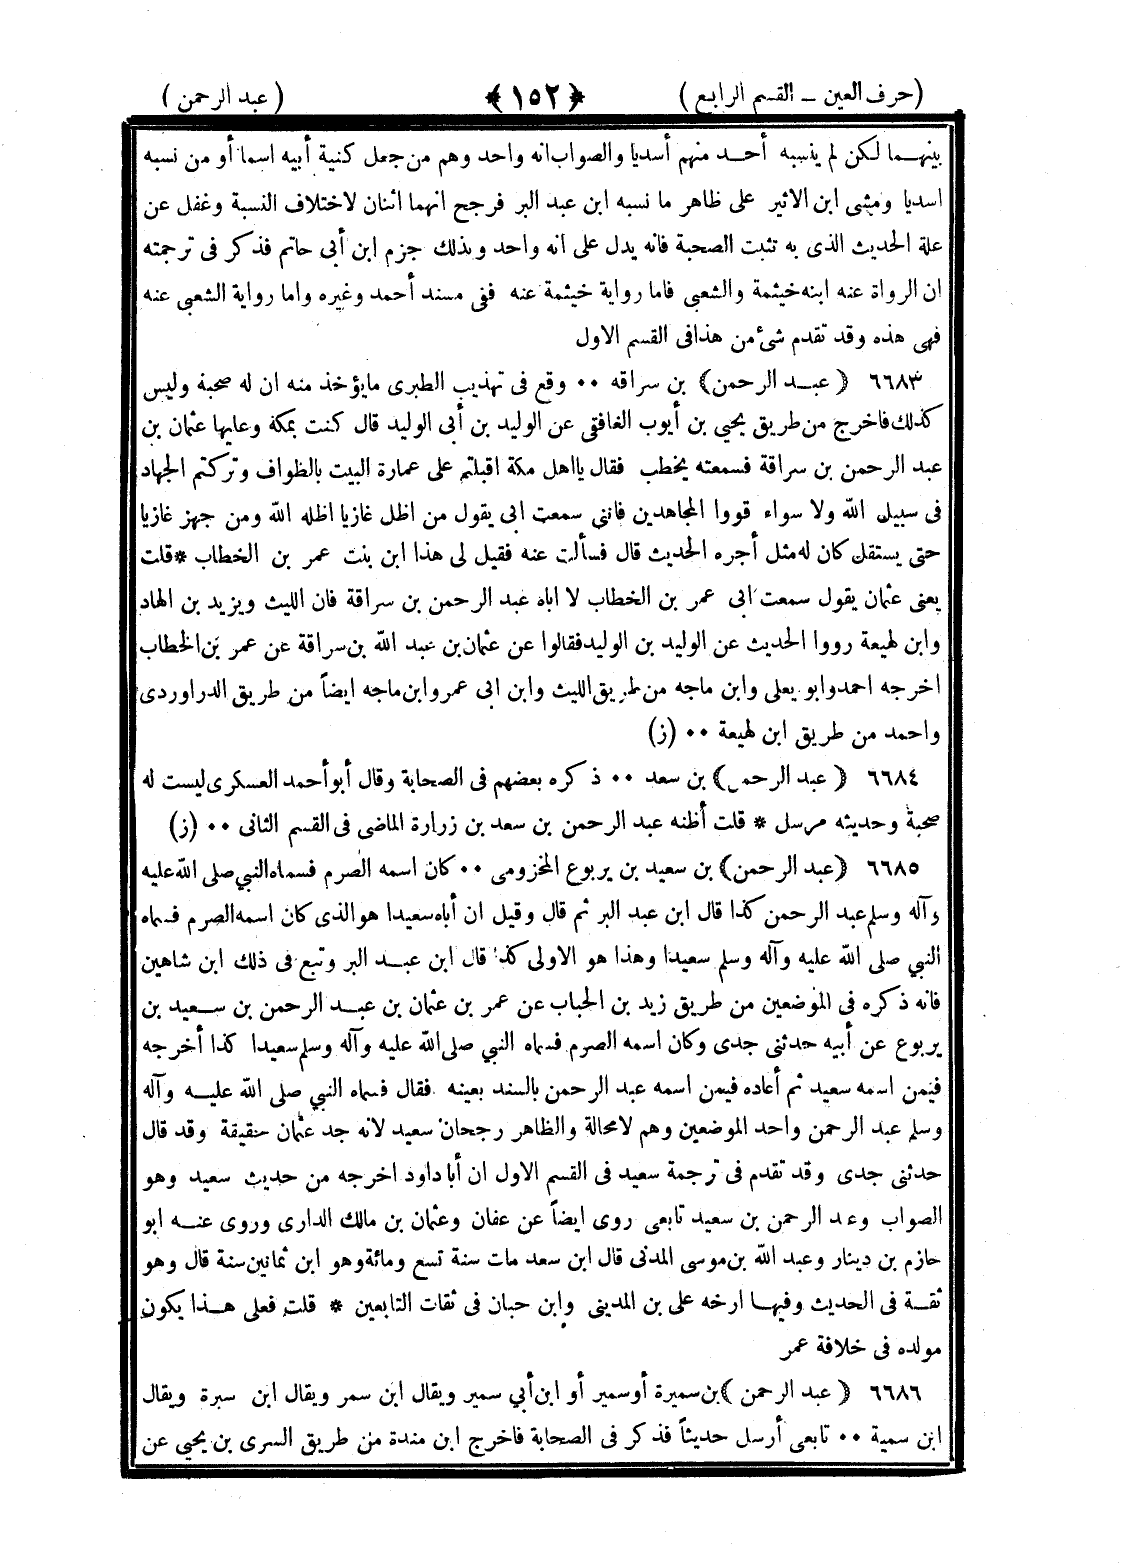 (حرف العين ــ القسم الرابع) ﴿١٥٢﴾ (عبد الرحمن)
بينهـــما لكن لم ينسبه أحــد منهم أسديا والصواب انه واحد وهم من جعل كنية أبيه اسما أو من نسبه
اسديا ومشى ابن الاثير على ظاهر ما نسبه ابن عبد البر فرجح انهما اثنان لاختلاف النسبة وغفل عن
علة الحديث الذى به تثبت الصحبة فانه يدل على انه واحد وبذلك جزم ابن أبى حاتم فذكر فى ترجمته
ان الرواة عنه ابنه خيثمة والشعبى فاما رواية خيثمة عنه ففى مسند أحمد وغيره واما رواية الشعبى عنه
فهى هذه وقد تقدم شئ من هذا فى القسم الاول
٦٦٨٣ ﴿عبــد الرحمن﴾ بن سراقه ٠٠ وقع فى تهذيب الطبرى ما يؤخذ منه ان له صحبة وليس
كذلك فاخرج من طريق يحيى بن أيوب الغافقى عن الوليد بن أبى الوليد قال كنت بمكة وعليها عثمان بن
عبد الرحمن بن سراقة فسمعته يخطب فقال يا اهل مكة اقبلتم على عمارة البيت بالطواف وتركتم الجهاد
فى سبيل الله ولا سواء قووا المجاهدين فانى سمعت ابى يقول من اظل غازيا اظله الله ومن جهز غازيا
حتى يستقل كان له مثل أجره الحديث قال فسألت عنه فقيل لى هذا ابن بنت عمر بن الخطاب * قلت
يعنى عثمان يقول سمعت ابى عمر بن الخطاب لا اباه عبد الرحمن بن سراقة فان الليث ويزيد بن الهاد
وابن لهيعة رووا الحديث عن الوليد بن الوليد فقالوا عن عثمان بن عبد الله بن سراقة عن عمر بن الخطاب
اخرجه احمد وابو يعلى وابن ماجه من طريق الليث وابن ابى عمر وابن ماجه ايضاً من طريق الدراوردى
واحمد من طريق ابن لهيعة ٠٠ (ز)
٦٦٨٤ ﴿عبد الرحمن﴾ بن سعد ٠٠ ذكره بعضهم فى الصحابة وقال أبو أحمد العسكرى ليست له
صحبة وحديثه مرسل * قلت أظنه عبد الرحمن بن سعد بن زرارة الماضى فى القسم الثانى ٠٠ (ز)
٦٦٨٥ ﴿عبد الرحمن﴾ بن سعيد بن يربوع المخزومى ٠٠ كان اسمه الصرم فسماه النبي صلى الله عليه
وآله وسلم عبد الرحمن كذا قال ابن عبد البر ثم قال وقيل ان أباه سعيدا هو الذى كان اسمه الصرم فسماه
النبي صلى الله عليه وآله وسلم سعيدا وهذا هو الاولى كذا قال ابن عبــد البر وتبع فى ذلك ابن شاهين
فانه ذكره فى الموضعين من طريق زيد بن الحباب عن عمر بن عثمان بن عبــد الرحمن بن ســعيد بن
يربوع عن أبيه حدثنى جدى وكان اسمه الصرم فسماه النبي صلى الله عليه وآله وسلم سعيدا كذا أخرجه
فيمن اسمه سعيد ثم أعاده فيمن اسمه عبد الرحمن بالسند بعينه فقال فسماه النبي صلى الله عليــه وآله
وسلم عبد الرحمن واحد الموضعين وهم لامحالة والظاهر رجحان سعيد لانه جد عثمان حقيقة وقد قال
حدثنى جدى وقد تقدم فى ترجمة سعيد فى القسم الاول ان أبا داود اخرجه من حديث سعيد وهو
الصواب وعبد الرحمن بن سعيد تابعى روى ايضاً عن عفان وعثمان بن مالك الدارى وروى عنــه ابو
حازم بن دينار وعبد الله بن موسى المدنى قال ابن سعد مات سنة تسع ومائة وهو ابن ثمانين سنة قال وهو
ثقــة فى الحديث وفيهــا ارخه على بن المدينى وابن حبان فى ثقات التابعين * قلت فعلى هــذا يكون
مولده فى خلافة عمر
٦٦٨٦ ﴿عبد الرحمن﴾ بن سميرة أو سمير أو ابن أبي سمير ويقال ابن سمر ويقال ابن سبرة ويقال
ابن سمية ٠٠ تابعى أرسل حديثاً فذكر فى الصحابة فاخرج ابن مندة من طريق السرى بن يحيى عن